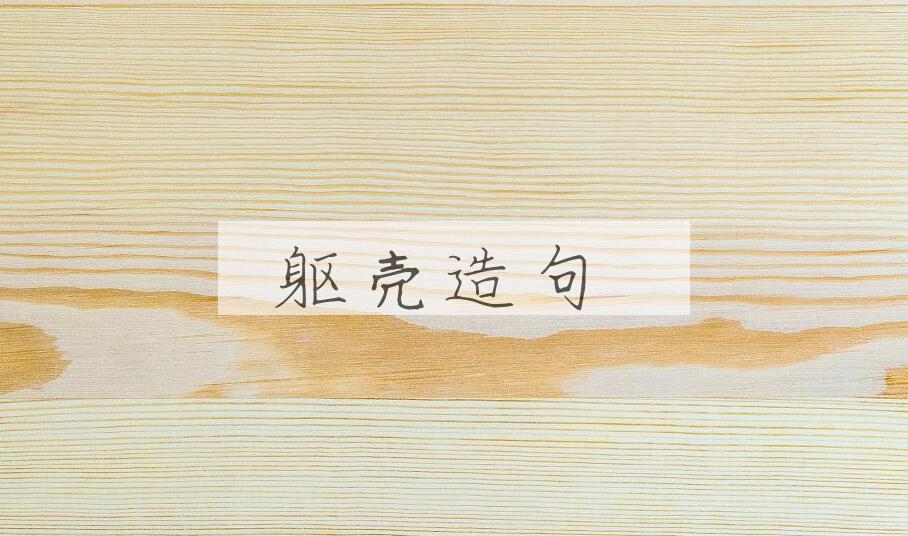 躯壳造句